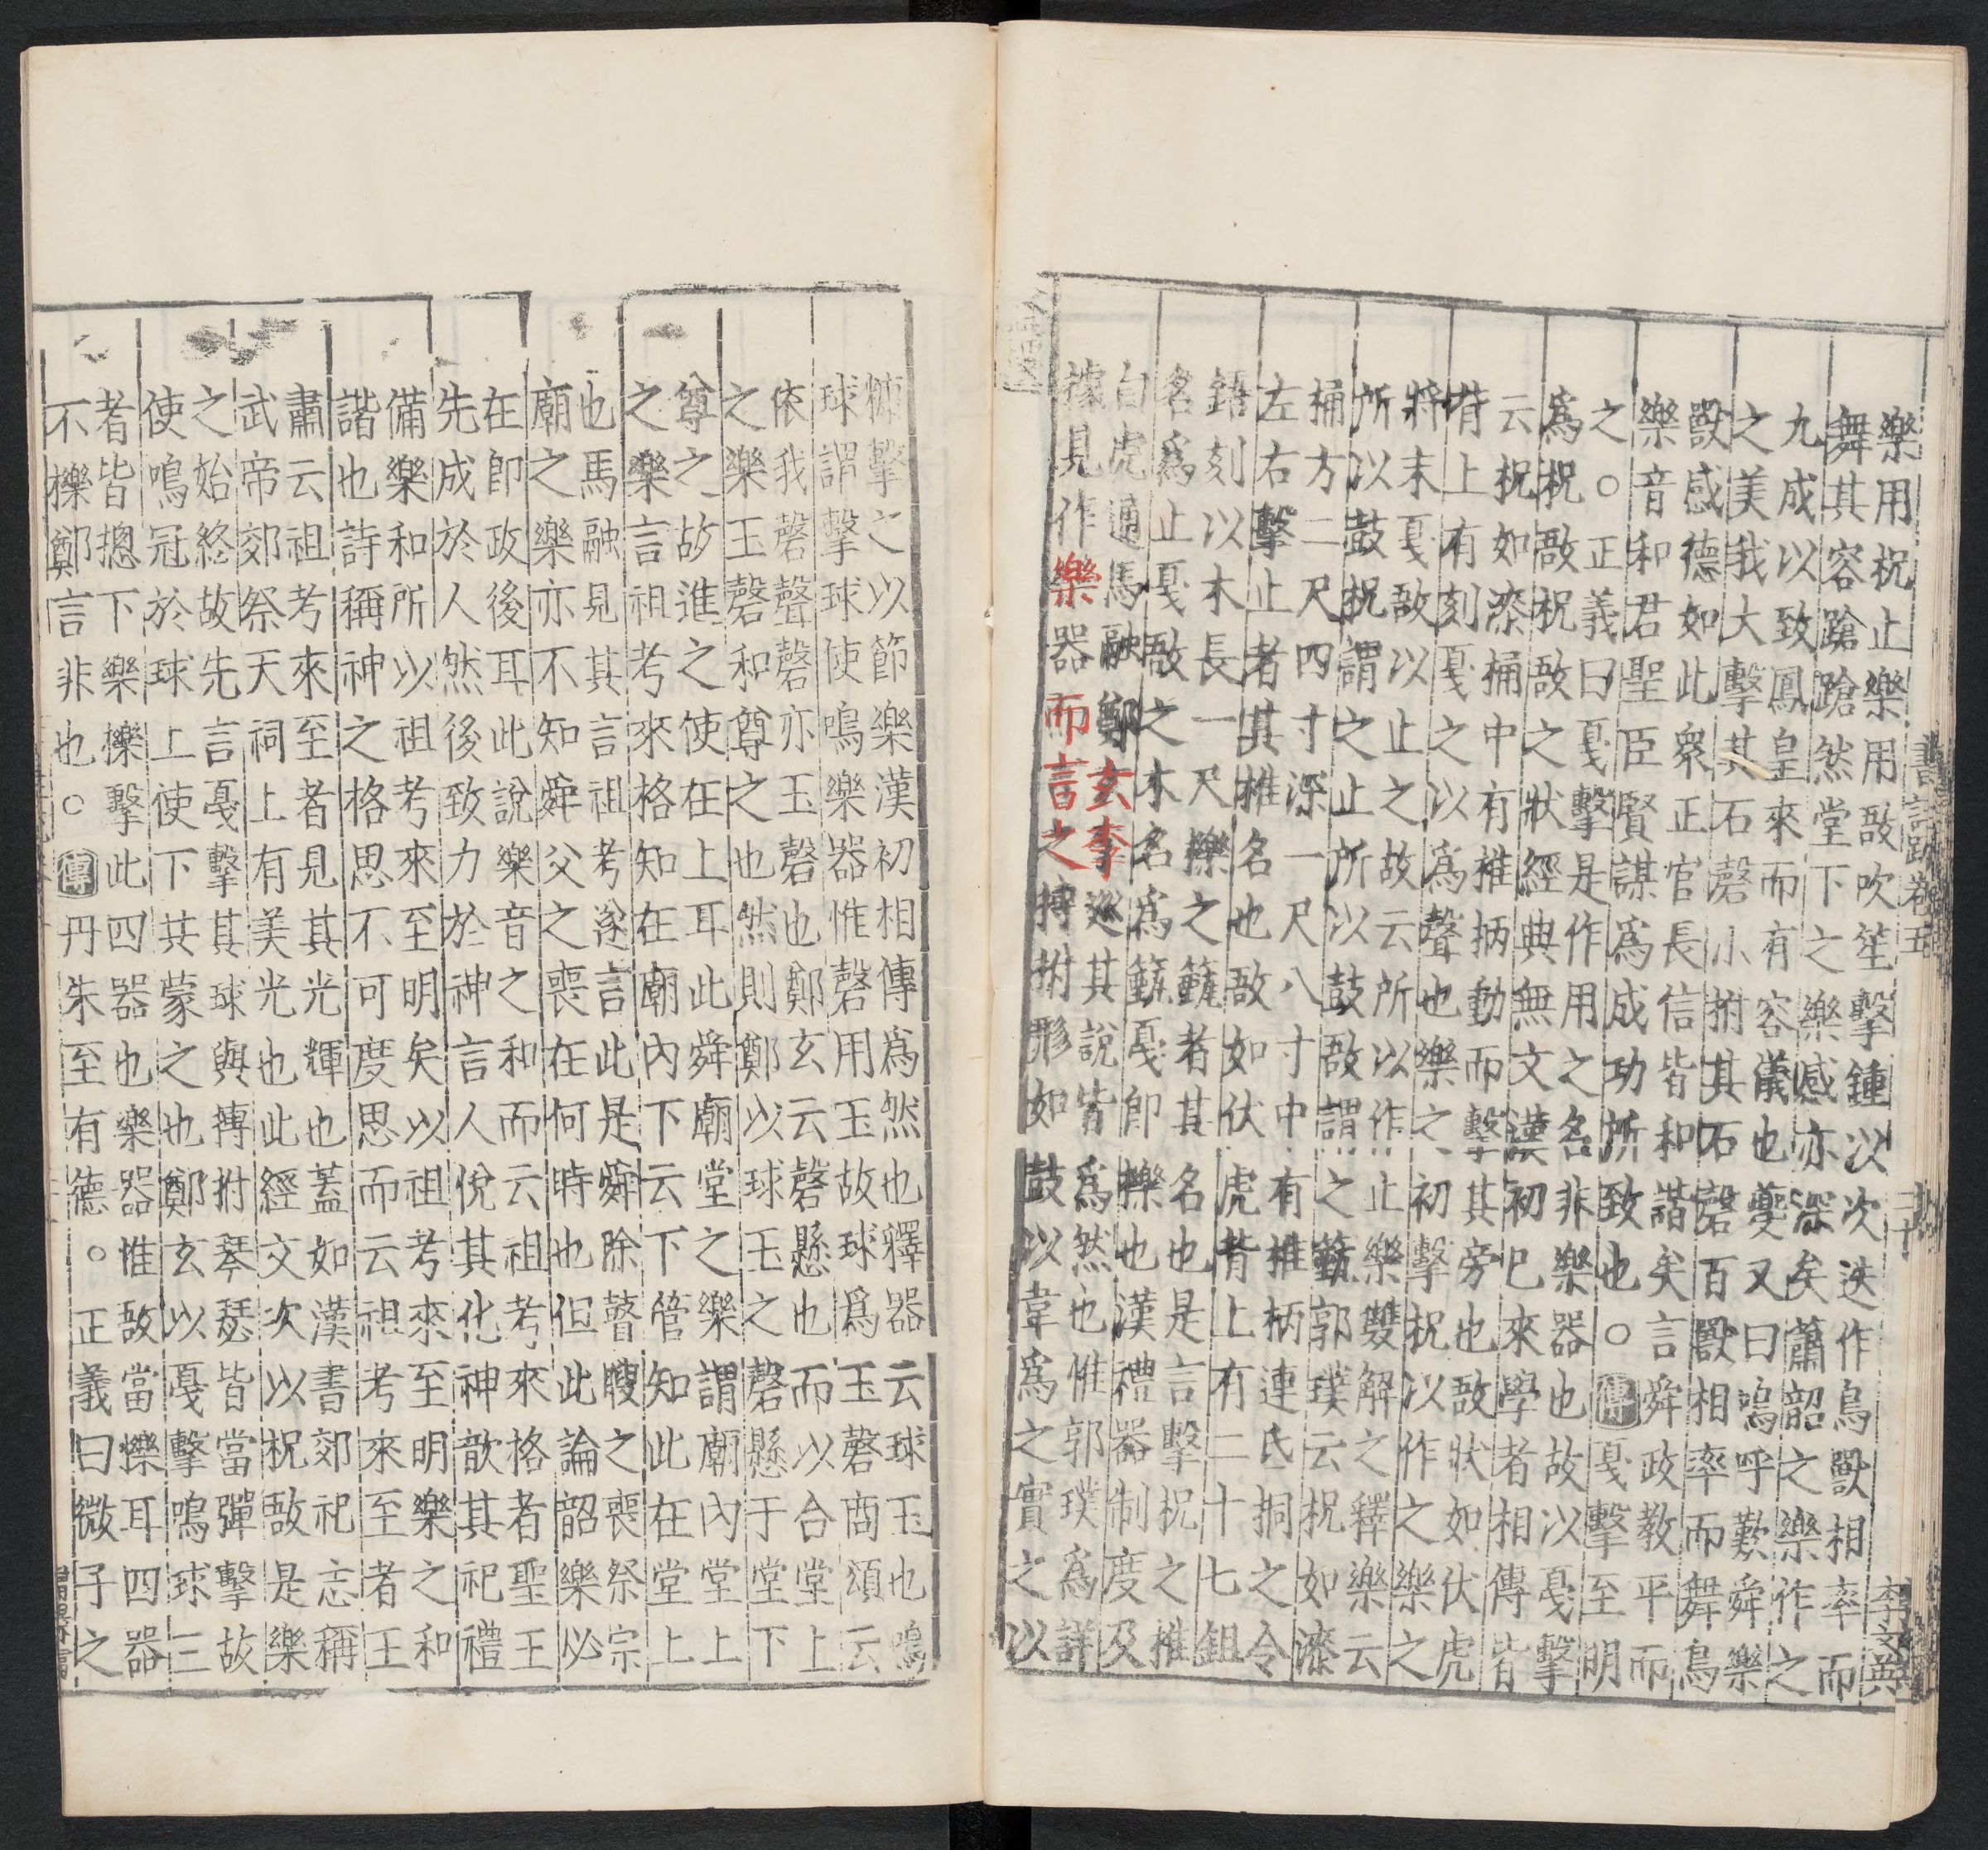 樂用柷止樂用敔吹笙擊鍾以次迭作鳥獸相率而
舞其容蹌蹌然堂下之樂感亦深矣蕭韶之樂作之
九成以致鳳皇來而有容儀也夔又曰嗚呼歎舜樂
之美我大擊其石磬小拊其石磬百獸相率而舞鳥
獸感德如此衆正官長信皆和諧矣言舜政教平而
樂音和君聖臣賢謀爲成功所致也○傳戛擊至明
之○正義曰戛擊是作用之名非樂器也故以戛擊
爲柷敔柷敔之狀經典無文漢初已來學者相傳皆
云柷如漆桶中有椎柄動而擊其旁也敔狀如伏虎
背上有刻戛之以爲聲也樂之初擊柷以作之樂之
將末戛敔以止之故云所以作止樂雙解之釋樂云
所以鼓柷謂之止所以鼓敔謂之籈郭璞云柷如漆
桶方二尺四寸深一尺八寸中有椎柄連氐挏之令
左右擊止者其椎名也敔如伏虎背上有二十七鉏
鋙刻以木長一尺櫟之籈者其名也是言擊柷之椎
名爲止戛敔之木名爲籈戛即櫟也漢禮器制度及
白虎通馬融鄭玄李巡其說皆爲然也惟郭璞爲詳
據見作樂器而言之搏拊形如鼓以韋爲之實之以
書註疏卷五
李文英
糠擊之以節樂漢初相傳爲然也釋器云球玉也鳴
球謂擊球使鳴樂器惟磬用玉故球爲玉磬商頌云
依我磬聲磬亦玉磬也鄭玄云磬懸也而以合堂上
之樂玉磬和尊之也然則鄭以球玉之磬懸于堂下
尊之故進之使在上耳此舜廟堂之樂謂廟內堂上
之樂言祖考來格知在廟內下云下管知此在堂上
也馬融見其言祖考遂言此是舜除瞽瞍之喪祭宗
廟之樂亦不知舜父之喪在何時也但此論韶樂必
在即政後耳此說樂音之和而云祖考來格者聖王
先成於人然後致力於神言人悅其化神歆其祀禮
備樂和所以祖考來至明矣以祖考來至明樂之和
諧也詩稱神之格思不可度思而云祖考來至者王
肅云祖考來至者見其光輝也蓋如漢書郊祀志稱
武帝郊祭天祠上有美光也此經文次以柷敔是樂
之始終故先言戛擊其球與搏拊琴瑟皆當彈擊故
使鳴冠於球上使下共蒙之也鄭玄以戛擊鳴球三
者皆摠下樂櫟擊此四器也樂器惟敔當櫟耳四器
不櫟鄭言非也○傳丹朱至有德○正義曰微子之